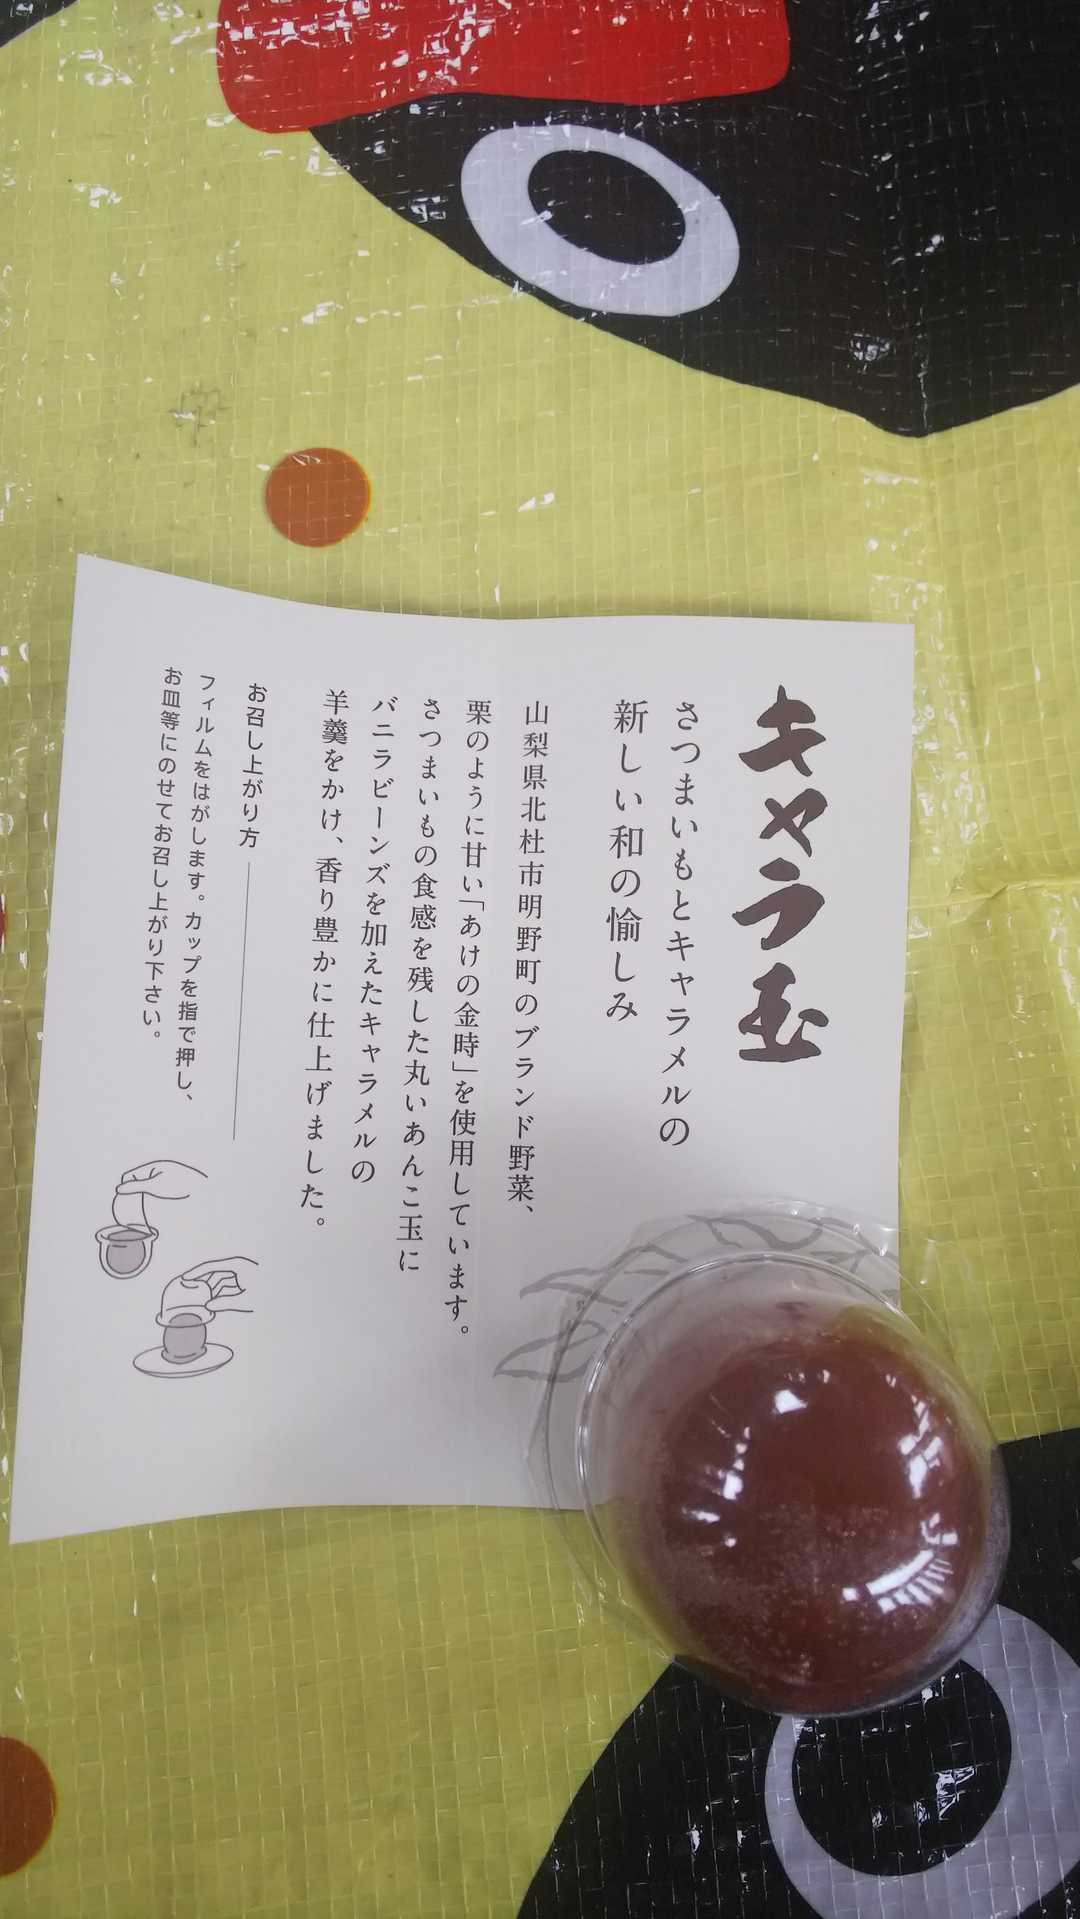 キャラ玉
さつまいもとキャラメルの
新しい和の愉しみ
山梨県北杜市明野町のブランド野菜、
栗のように甘い「あけの金時」を使用しています。
さつまいもの食感を残した丸いあんこ玉に
バニラビーンズを加えたキャラメルの
羊羹をかけ、香り豊かに仕上げました。
お召し上がり方
フィルムをはがします。カップを指で押し、
お皿等にのせてお召し上がり下さい。